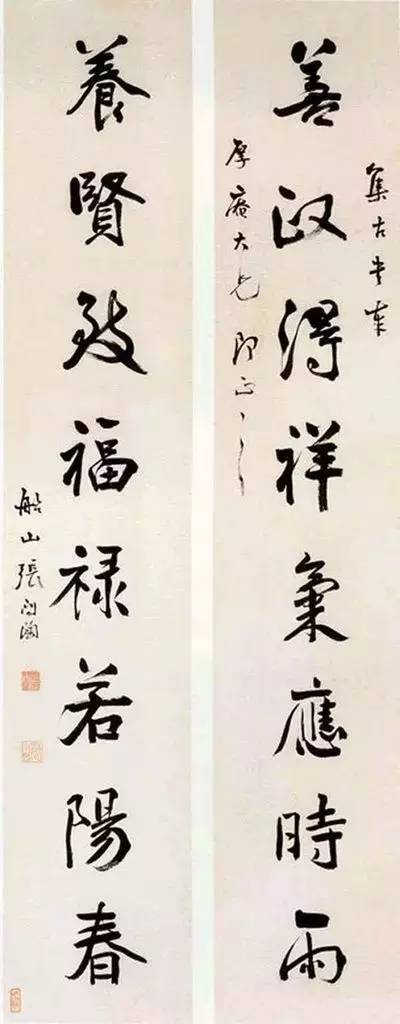 集古書奉
善政得祥氣應時雨
厚庵大兄即正
養賢致福祿若陽春
船山張問陶